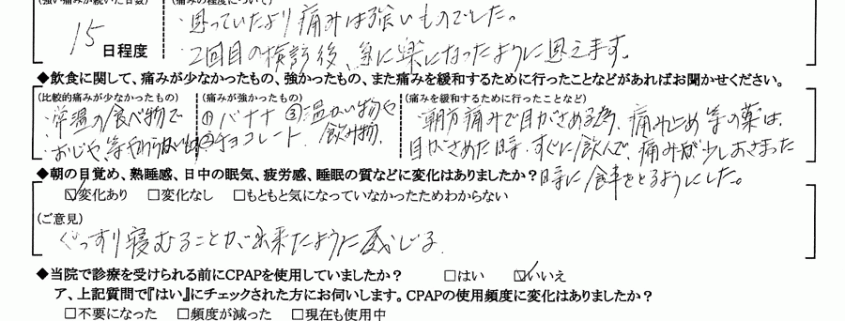 (強い痛みが続いた日数) (痛みの程度について)
15 日程度
・思っていたより痛みは強いものでした。
・2回目の検診後、急に楽になったように思えます。
◆飲食に関して、痛みが少なかったもの、強かったもの、また痛みを緩和するために行ったことなどがあればお聞かせください。
(比較的痛みが少なかったもの)
・常温の食べ物で
・おじや、等やわらかい物
(痛みが強かったもの)
①バナナ ③温かい物や
②チョコレート 飲み物.
(痛みを緩和するために行ったことなど)
・朝方痛みで目がさめる為、痛み止め等の薬は、
目がさめた時、すぐに飲んで、痛みが少しおさまった
時に食事をとるようにした。
◆朝の目覚め、熟睡感、日中の眠気、疲労感、睡眠の質などに変化はありましたか?
☑変化あり □変化なし □もともと気になっていなかったためわからない
(ご意見)
ぐっすり寝むることが出来たように感じる.
◆当院で診療を受けられる前にCPAPを使用していましたか? □はい ☑いいえ
ア、上記質問で『はい』にチェックされた方にお伺いします。CPAPの使用頻度に変化はありましたか?
□不要になった □頻度が減った □現在も使用中